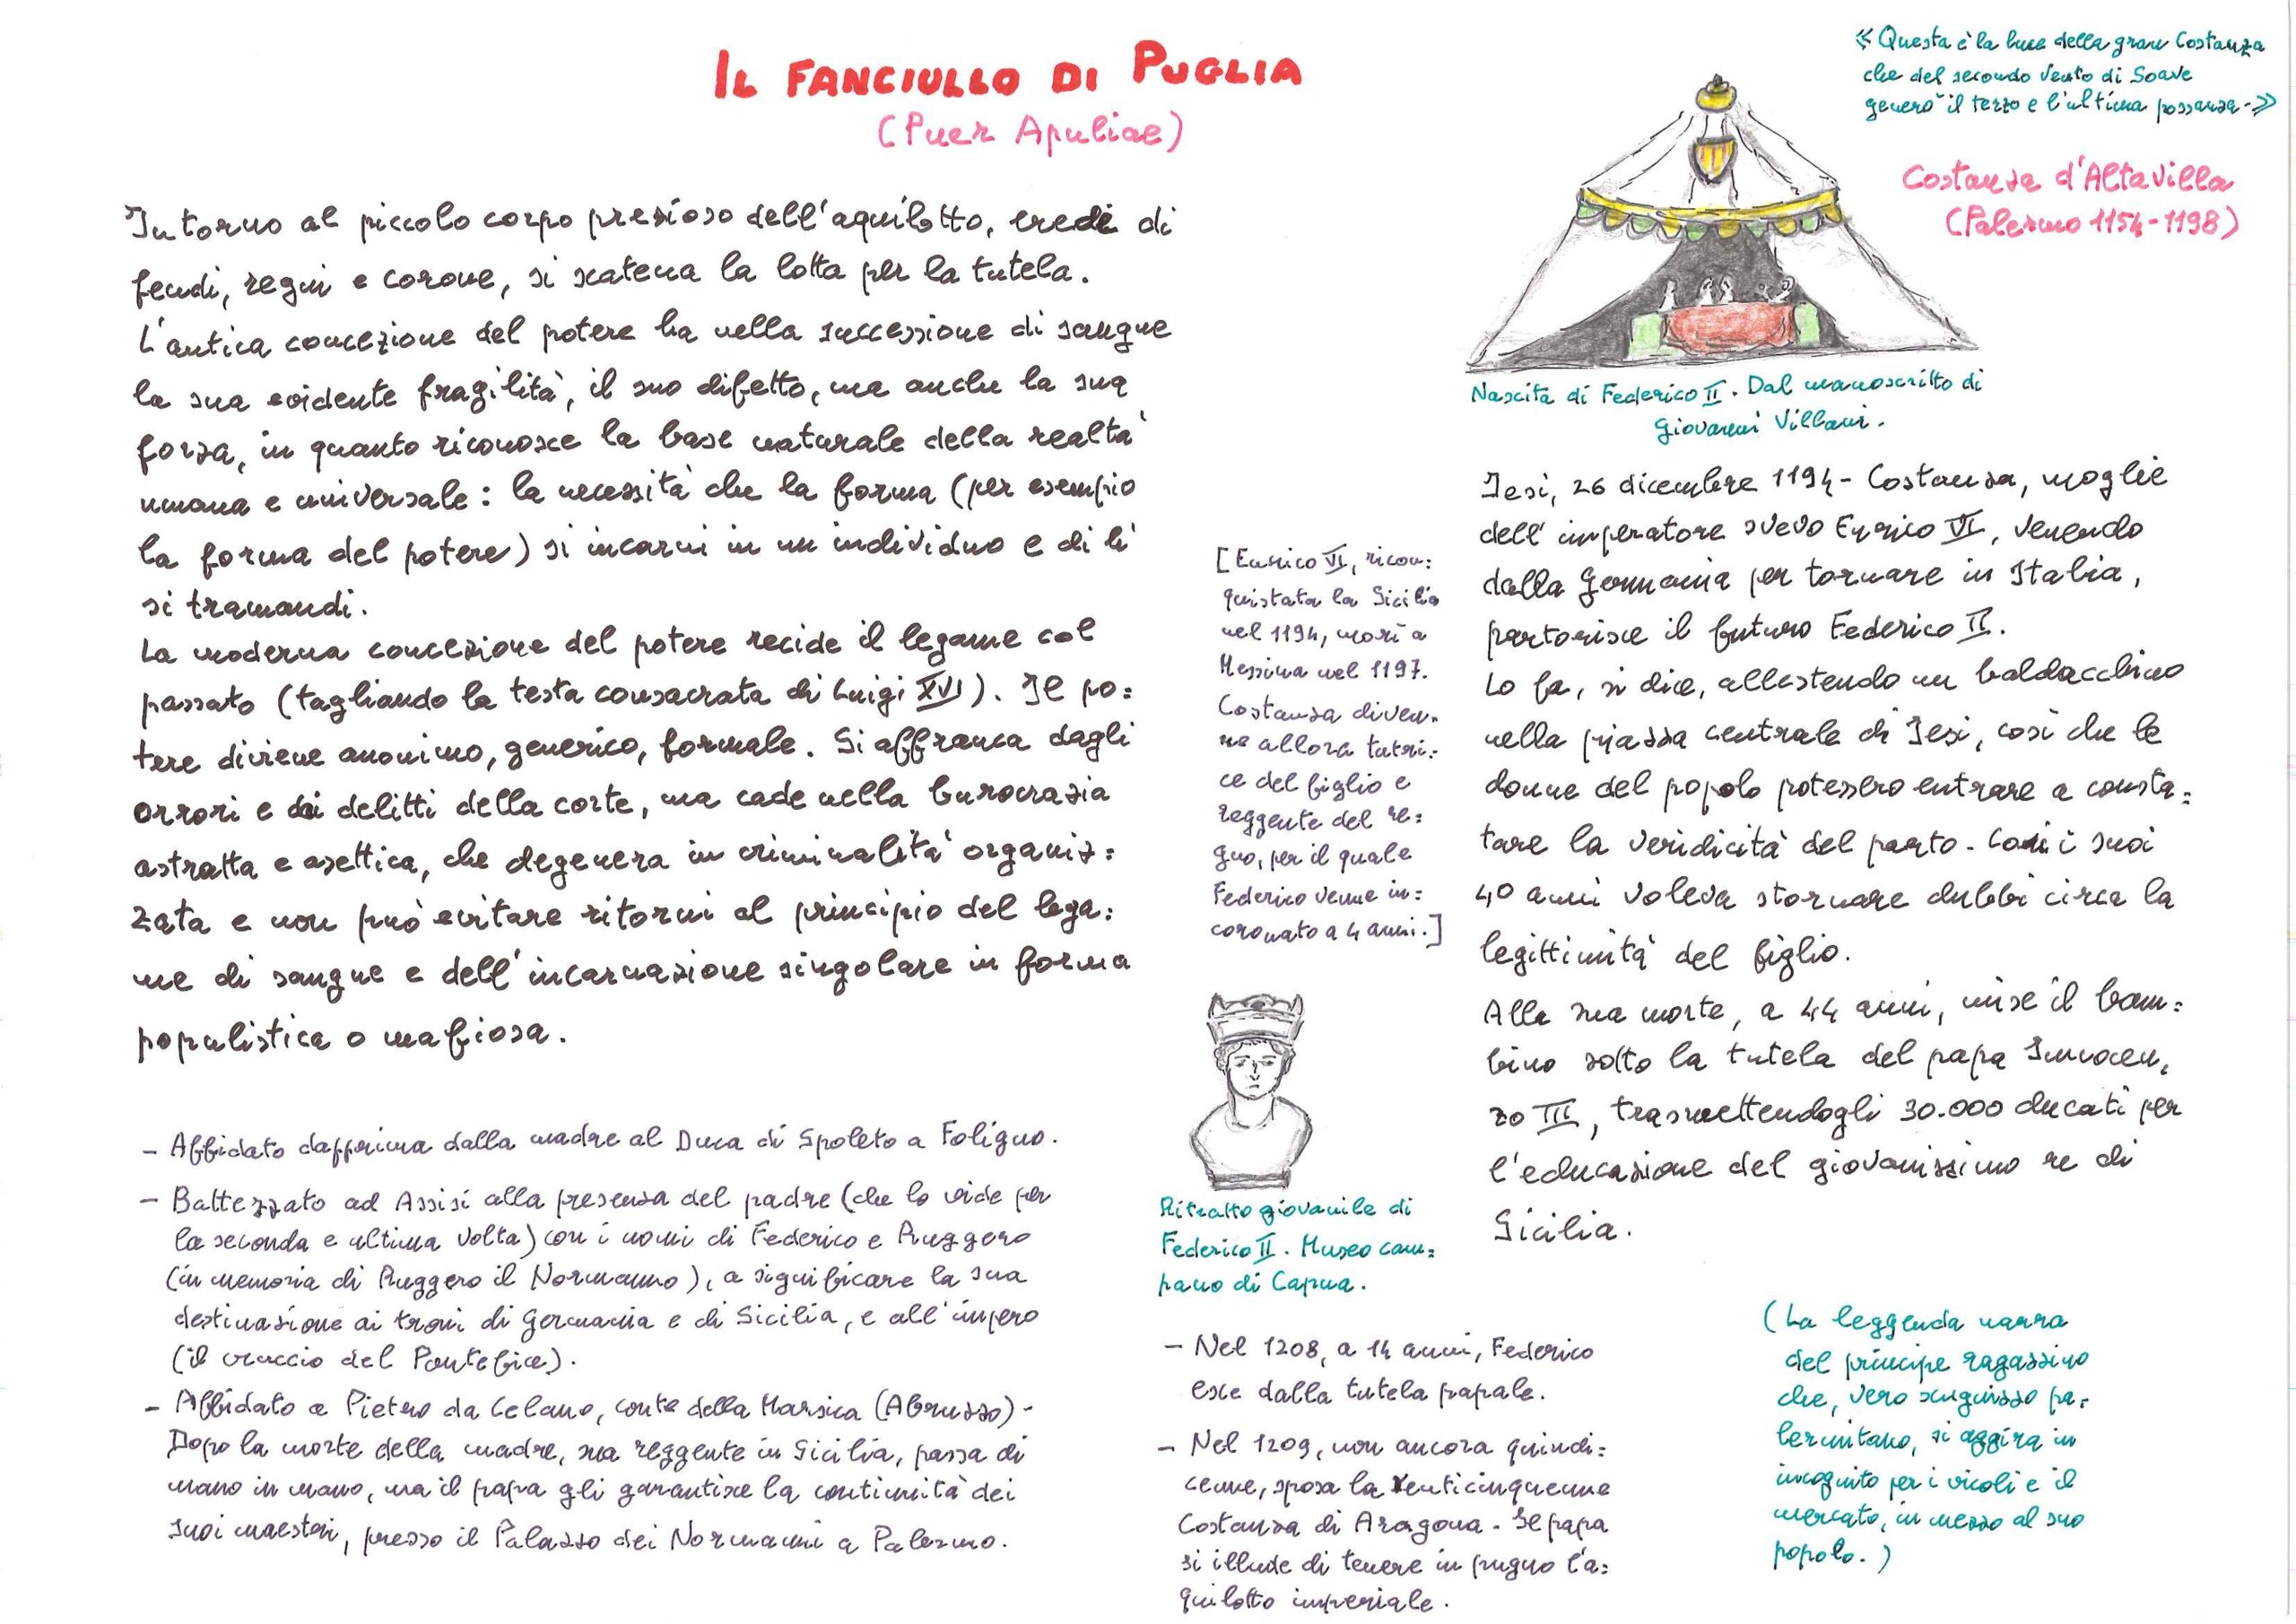 IL FANCIULLO DI PUGLIA
(Puer Apuliae)
Intorno al piccolo corpo prezioso dell'aquilotto, erede di
feudi, regni e corone, si scatena la lotta per la tutela.
L'antica concezione del potere ha nella successione di sangue
la sua evidente fragilità, il suo difetto, ma anche la sua
forza, in quanto riconosce la base naturale della realtà
umana e universale: la necessità che la forma (per esempio
la forma del potere) si incarni in un individuo e di lì
si tramandi.
La moderna concezione del potere recide il legame col
passato (tagliando la testa consacrata di Luigi XVI). Il po=
tere diviene anonimo, generico, formale. Si affranca dagli
orrori e dai delitti della corte, ma cade nella burocrazia
astratta e asettica, che degenera in criminalità organiz=
zata e non può evitare ritorni al principio del lega=
me di sangue e dell'incarnazione singolare in forma
populistica o mafiosa.
- Affidato dapprima dalla madre al Duca di Spoleto a Foligno.
- Battezzato ad Assisi alla presenza del padre (che lo vide per
la seconda e ultima volta) con i nomi di Federico e Ruggero
(in memoria di Ruggero il Normanno), a significare la sua
destinazione ai troni di Germania e di Sicilia, e all'impero
(il cruccio del Pontefice).
- Affidato a Pietro da Celano, conte della Marsica (Abruzzo) -
Dopo la morte della madre, sua reggente in Sicilia, passa di
mano in mano, ma il papa gli garantisce la continuità dei
suoi maestri, presso il Palazzo dei Normanni a Palermo.
[Enrico VI, ricon=
quistata la Sicilia
nel 1194, morì a
Messina nel 1197.
Costanza diven=
ne allora tutri=
ce del figlio e
reggente del re=
gno, per il quale
Federico venne in=
coronato a 4 anni.]
Ritratto giovanile di
Federico II. Museo cam=
pano di Capua.
- Nel 1208, a 14 anni, Federico
esce dalla tutela papale.
- Nel 1209, non ancora quindi=
cenne, sposa la venticinquenne
Costanza di Aragona. Il papa
si illude di tenere in pugno l'a=
quilotto imperiale.
«Questa è la luce della gran Costanza
che del secondo vento di Soave
generò il terzo e l'ultima possanza.»
Costanza d'Altavilla
(Palermo 1154-1198)
Nascita di Federico II. Dal manoscritto di
Giovanni Villani.
Iesi, 26 dicembre 1194 - Costanza, moglie
dell'imperatore svevo Enrico VI, venendo
dalla Germania per tornare in Italia,
partorisce il futuro Federico II.
Lo fa, si dice, allestendo un baldacchino
nella piazza centrale di Iesi, così che le
donne del popolo potessero entrare a consta=
tare la veridicità del parto. Con i suoi
40 anni voleva stornare dubbi circa la
legittimità del figlio.
Alla sua morte, a 44 anni, mise il bam=
bino sotto la tutela del papa Innocen=
zo III, trasmettendogli 30.000 ducati per
l'educazione del giovanissimo re di
Sicilia.
(La leggenda narra
del principe ragazzino
che, vero scugnizzo pa=
lermitano, si aggira in
incognito per i vicoli e il
mercato, in mezzo al suo
popolo.)